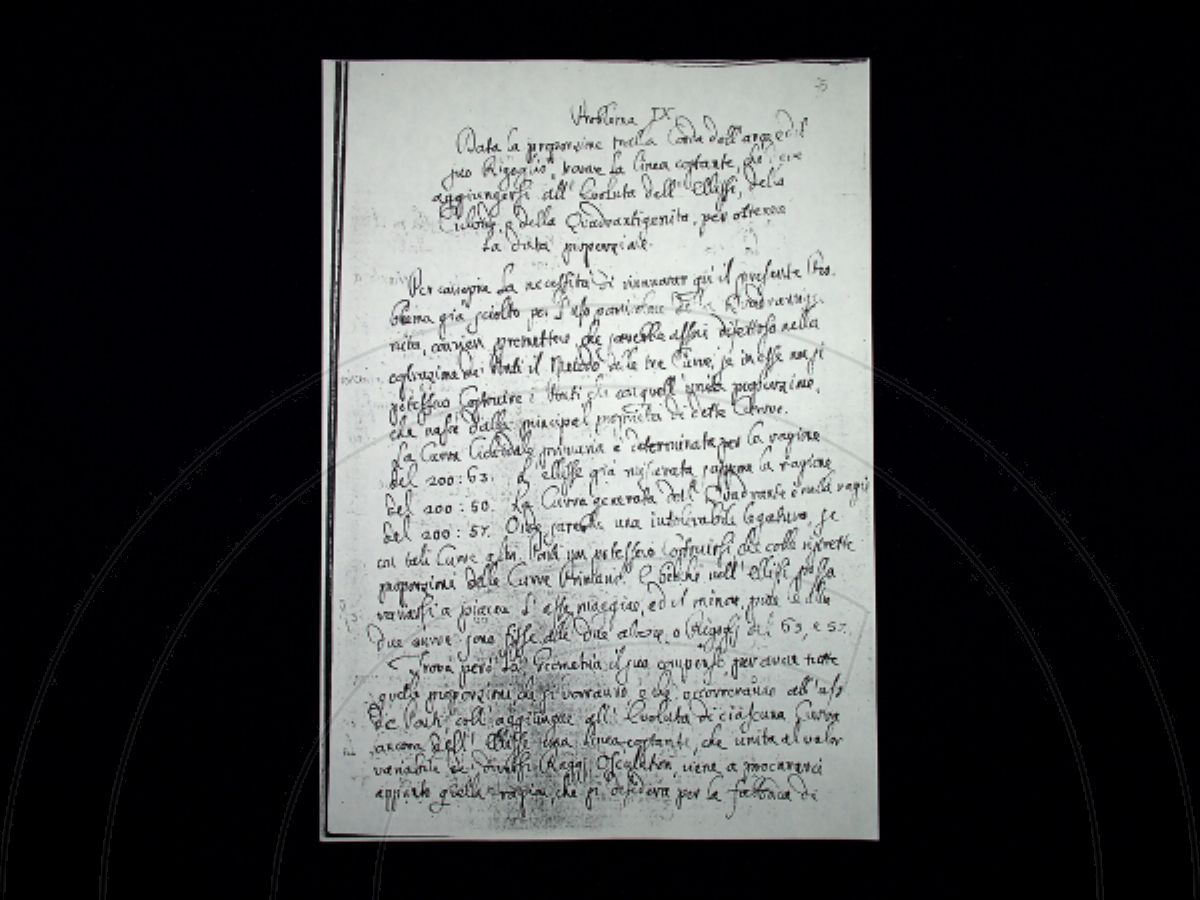 35
Problema IX.
Data la proporzione tralla Corda dell'arco ed il
suo Rigoglio, trovare la linea costante, che deve
aggiungersi all' Evoluta dell' Ellissi, della
e della Quadrantigenita, per ottenere
la data proporzione.
Per cansare la necessità di rinnovar qui il presente Pro-
blema già sciolto per l'uso particolare della Quadrantige-
nita, convien premettere, che sarebbe assai difettoso nella
costruzione dei Ponti il Metodo delle tre Curve, se in esse non si
potessero Costruire i Ponti che con quell' unica proporzione,
che nasce dalla principal proprietà di dette Curve.
La Curva Cicloidale primaria è determinata per la ragione
del 200:63. L' ellisse già misurata la ragione
del 200:50. La Curva generata dall' Quadrante è nella ragion
del 200:57. Onde sarebbe una intolerabile legatura, se
con tali Curve altri Ponti non potessero costruirsi, che colle ristrette
proporzioni delle Curve Primarie. E benchè nell' Ellissi possa
variarsi a piacere l' asse maggiore, ed il minore, pure le altre
due curve sono fisse alle due altezze, o Rigogli del 63, e 57.
Trova però la Geometria il suo compenso per avere tutte
quelle proporzioni che si vorranno, o che occorreranno all' uso
de' Ponti coll' aggiungere all' Evoluta di ciascuna Curva
ancora dell' Ellisse una linea costante, che unita al valor
variabile de' diversi Raggi Osculatori, viene a procurarci
appunto quella ragione, che si desidera per la fabbrica di